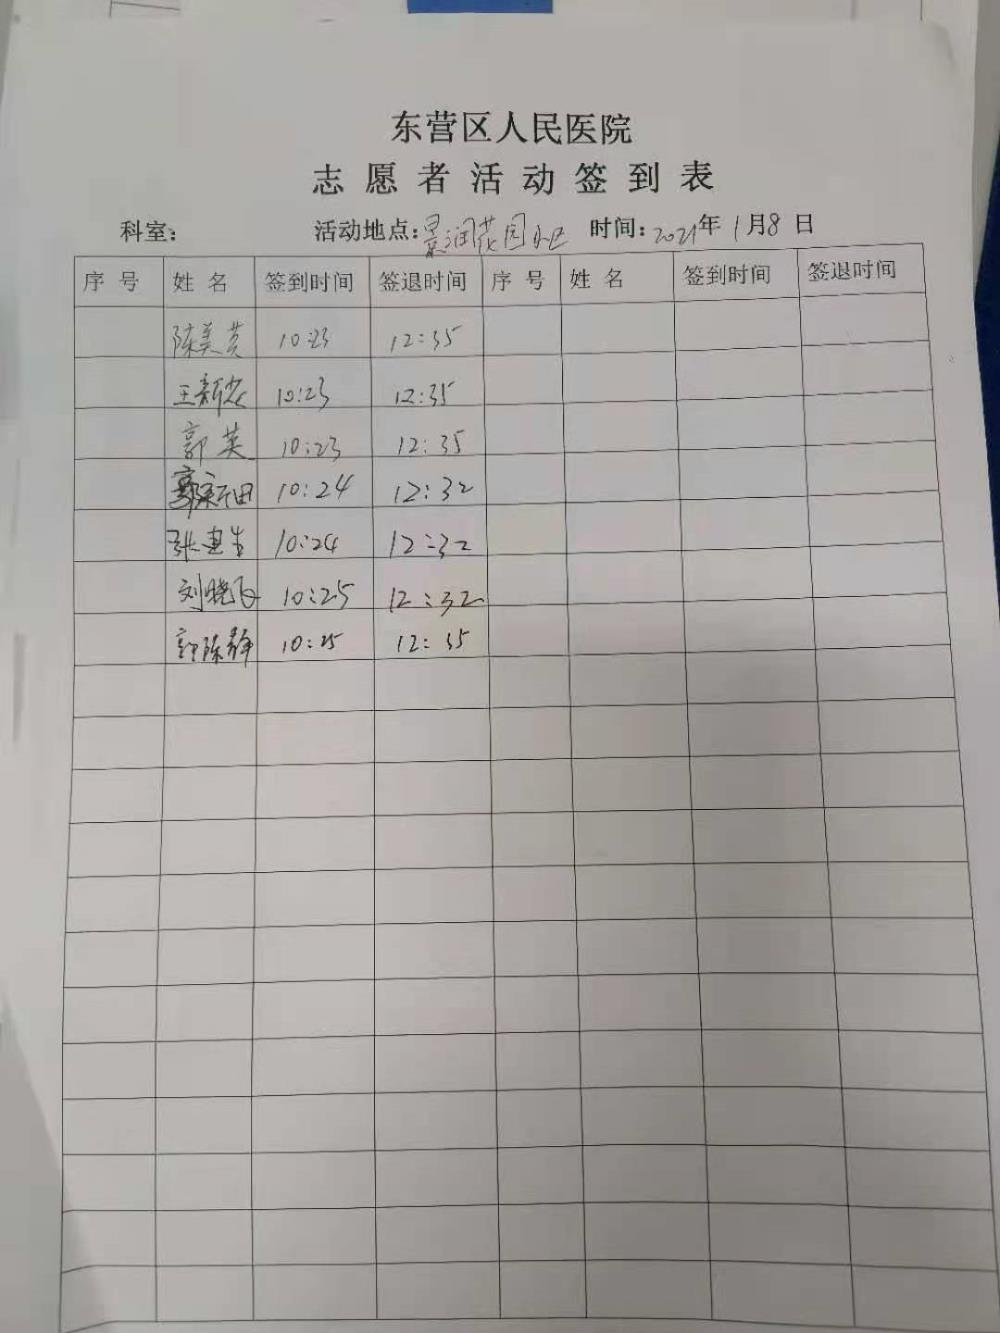 东营区人民医院
志愿者活动签到表
科室: 活动地点:景润花园小区 时间:2021年1月8日
序号 姓名 签到时间 签退时间 序号 姓名 签到时间 签退时间
陈美芸 10:23 12:35
王新 10:23 12:35
郭英 10:23 12:35
郭 田 10:24 12:32
张建 10:24 12:32
刘晓飞 10:25 12:32
郭陈静 10:25 12:35